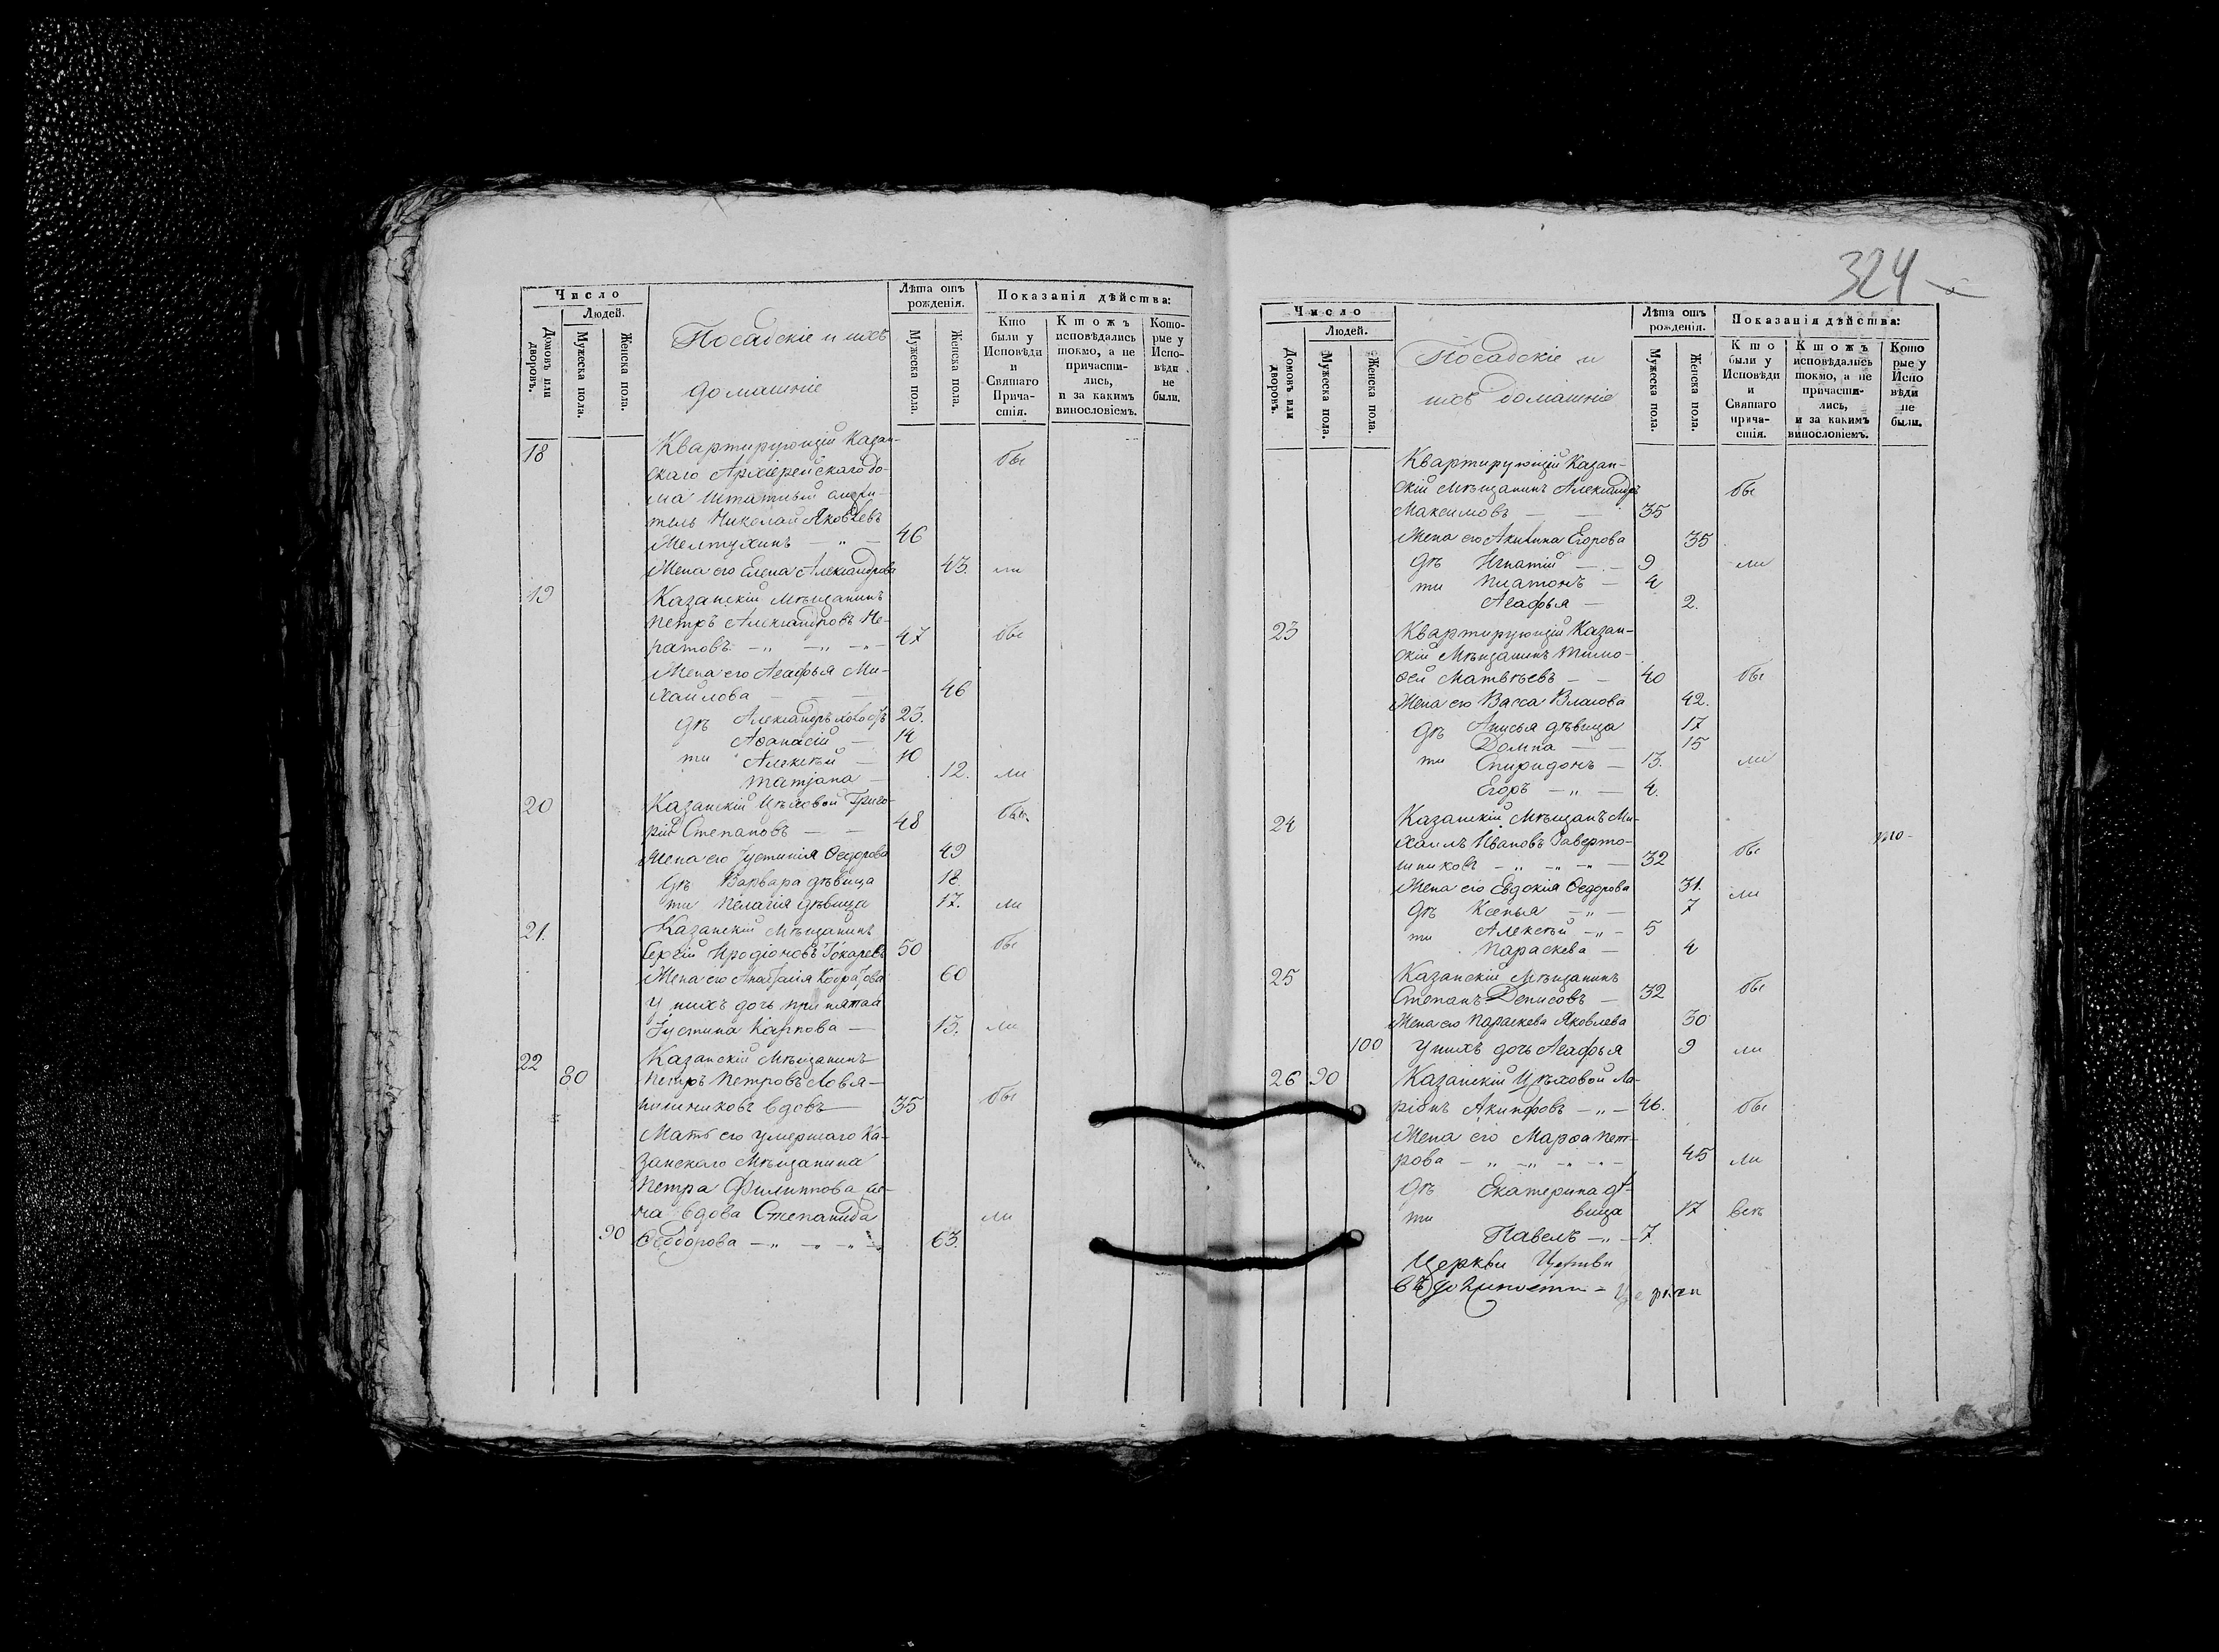 324
Число
Людей.
Домовъ или дворовъ.
Мужеска пола.
Женска пола.
Посадскіе и ихъ
домашніе
Лѣта отъ
рожденія.
Мужеска пола.
Женска пола.
Показанія дѣйства:
Кто
были у
Исповѣди
и
Святаго
Прича-
стія.
Ктожъ
исповѣдались
токмо, а не
причасти-
лись,
и за какимъ
винословіемъ.
Кото-
рые у
Испо-
вѣди
не
были.
18 Квартирующій Казан-
скаго Архіерейскаго до- бы
ма штатный служи-
тель Николай Яковлевъ
Желтухинъ — „ — 46
Жена его Елена Александрова 43. ли
19 Казанскій мѣщанинъ
Петръ Александровъ Не-
ратовъ — „ — „ — „ — 47 бы
Жена его Агафья Ми-
хайлова — — — 46
дѣ Александръ холостъ 23.
Аѳанасій — 14
ти Алексѣй — 10
Татіана — 12. ли
20 Казанскій Цѣховой Григо-
рій Степановъ — — 48 бы
Жена его Іустинія Ѳедорова 49
дѣ Варвара дѣвица 18
ти Пелагія дѣвица 17. ли
21. Казанскій Мѣщанинъ
Сергій Иродіоновъ Токаревъ 50 бы
Жена его Анастасія 60
У нихъ дочь принятая
Іустина Карпова — 13. ли
22 Казанскій Мѣщанинъ
80 Петръ Петровъ
вдовъ — 35 бы
Мать его умершаго Ка-
занскаго Мѣщанина
Петра Филиппова
вдова Степанида ли
90 Ѳеодорова — „ — „ — 63.
Число
Людей.
Домовъ или дворовъ.
Мужеска пола.
Женска пола.
Посадскіе и
ихъ домашніе
Лѣта отъ
рожденія.
Мужеска пола.
Женска пола.
Показанія дѣйства:
Кто
были у
Исповѣди
и
Святаго
прича-
стія.
Ктожъ
исповѣдались
токмо, а не
причасти-
лись,
и за какимъ
винословіемъ.
Кото
рые у
Испо
вѣди
не
были.
Квартирующій Казан-
скій мѣщанинъ Александръ бы
Максимовъ — — 35
Жена его Акилина Егорова 35
дѣ Игнатій — 9 ли
ти Платонъ — 4
Агафья — 2.
23 Квартирующій Казан-
скій Мѣщанинъ Тимо-
ѳей Матвѣевъ — — 40 бы
Жена его Васса Власова 42.
дѣ Анисья дѣвица 17
Домна — — 15
ти Спиридонъ — 13. ли
Егоръ — „ — 4.
24 Казанскій Мѣщанъ Ми-
хаилъ Ивановъ
— „ — „ — 32 бы
Жена его Евдокія Ѳедорова 31. ли
дѣ Ксенья — „ — 7
ти Алексѣй — „ — 5
Параскева — 4
25 Казанскій Мѣщанинъ
Степанъ Денисовъ — 32 бы
Жена его Параскева Яковлева 30
100 У нихъ дочь Агафья 9 ли
26 90 Казанскій Цѣховой Ла-
ріонъ Акинфовъ — „ — 46. бы
Жена его Марѳа Пет-
рова — „ — „ — „ — 45 ли
дѣ Екатерина дѣ-
ти вица 17 всѣ
Павелъ — „ — 7.
Церкви